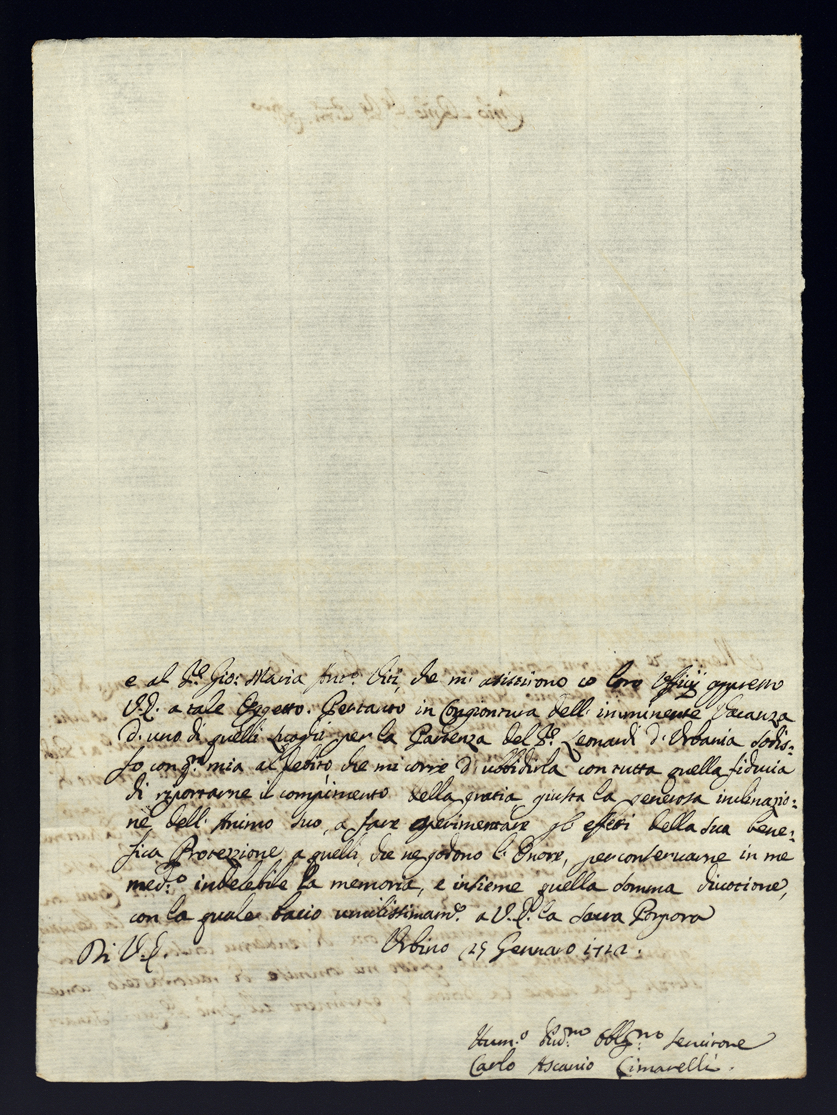 e al Sr. Gio: Maria Anto. Viti, che mi assistirono co loro Offitij appresso
V.E. a tale Oggetto. Pertanto in Congiontura dell' imminente Vacanza
d'uno di quelli luoghi per la Partenza del Sr. Leonardi d'Urbania sodis-
fo con qta. mia al debito che mi corre d'ubbidirla con tutta quella fiducia
di riportarne il compimento della gratia giusta la generosa inclinazio:
ne dell' Animo suo, a fare esperimentare gli effetti della sua bene:
fica Protezione a quelli, che ne godono l'Onore, per conservarne in me
medmo. indelebile la memoria, e insieme quella somma divotione,
con la quale bacio umilissimamte. a V.E. la Sacra Porpora
Di V.E. Urbino 25 Gennaro
Humo. Divmo Obligmo Servitore
Carlo Ascanio Cimarelli.